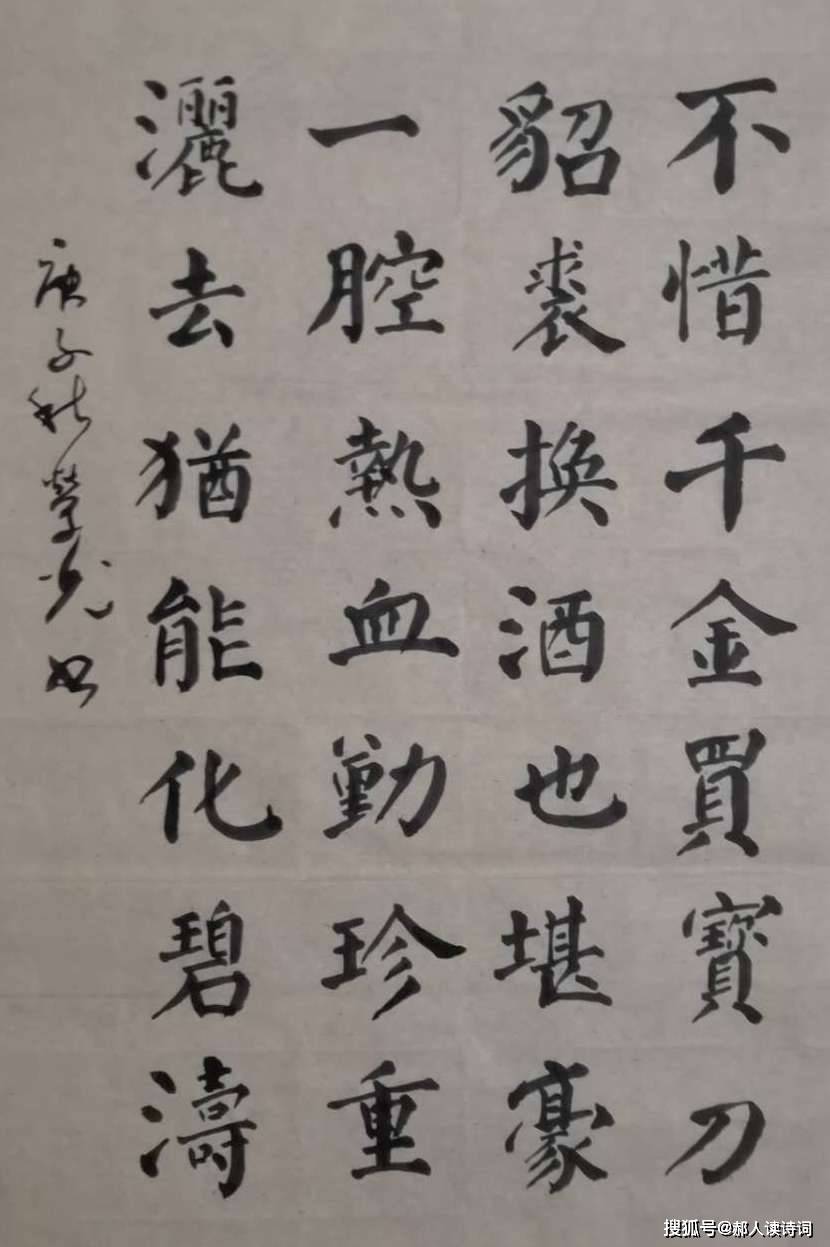 不惜千金買寳刀
貂裘換酒也堪豪
一腔熱血勤珍重
灑去猶能化碧濤
庚子秋榮光书
搜狐号@郝人读诗词